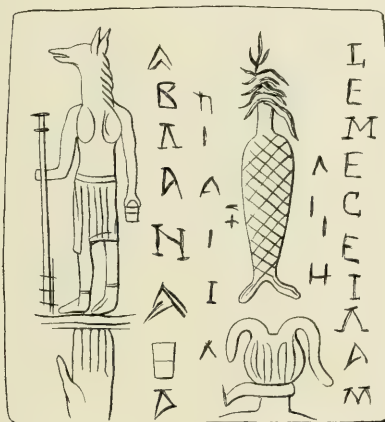 ΑΒΛΑΝΑΘΑ
ΠΙΛΙΙΛ
ΛΙΙΗ
LΕΜΕCΕΙΛΑΜ